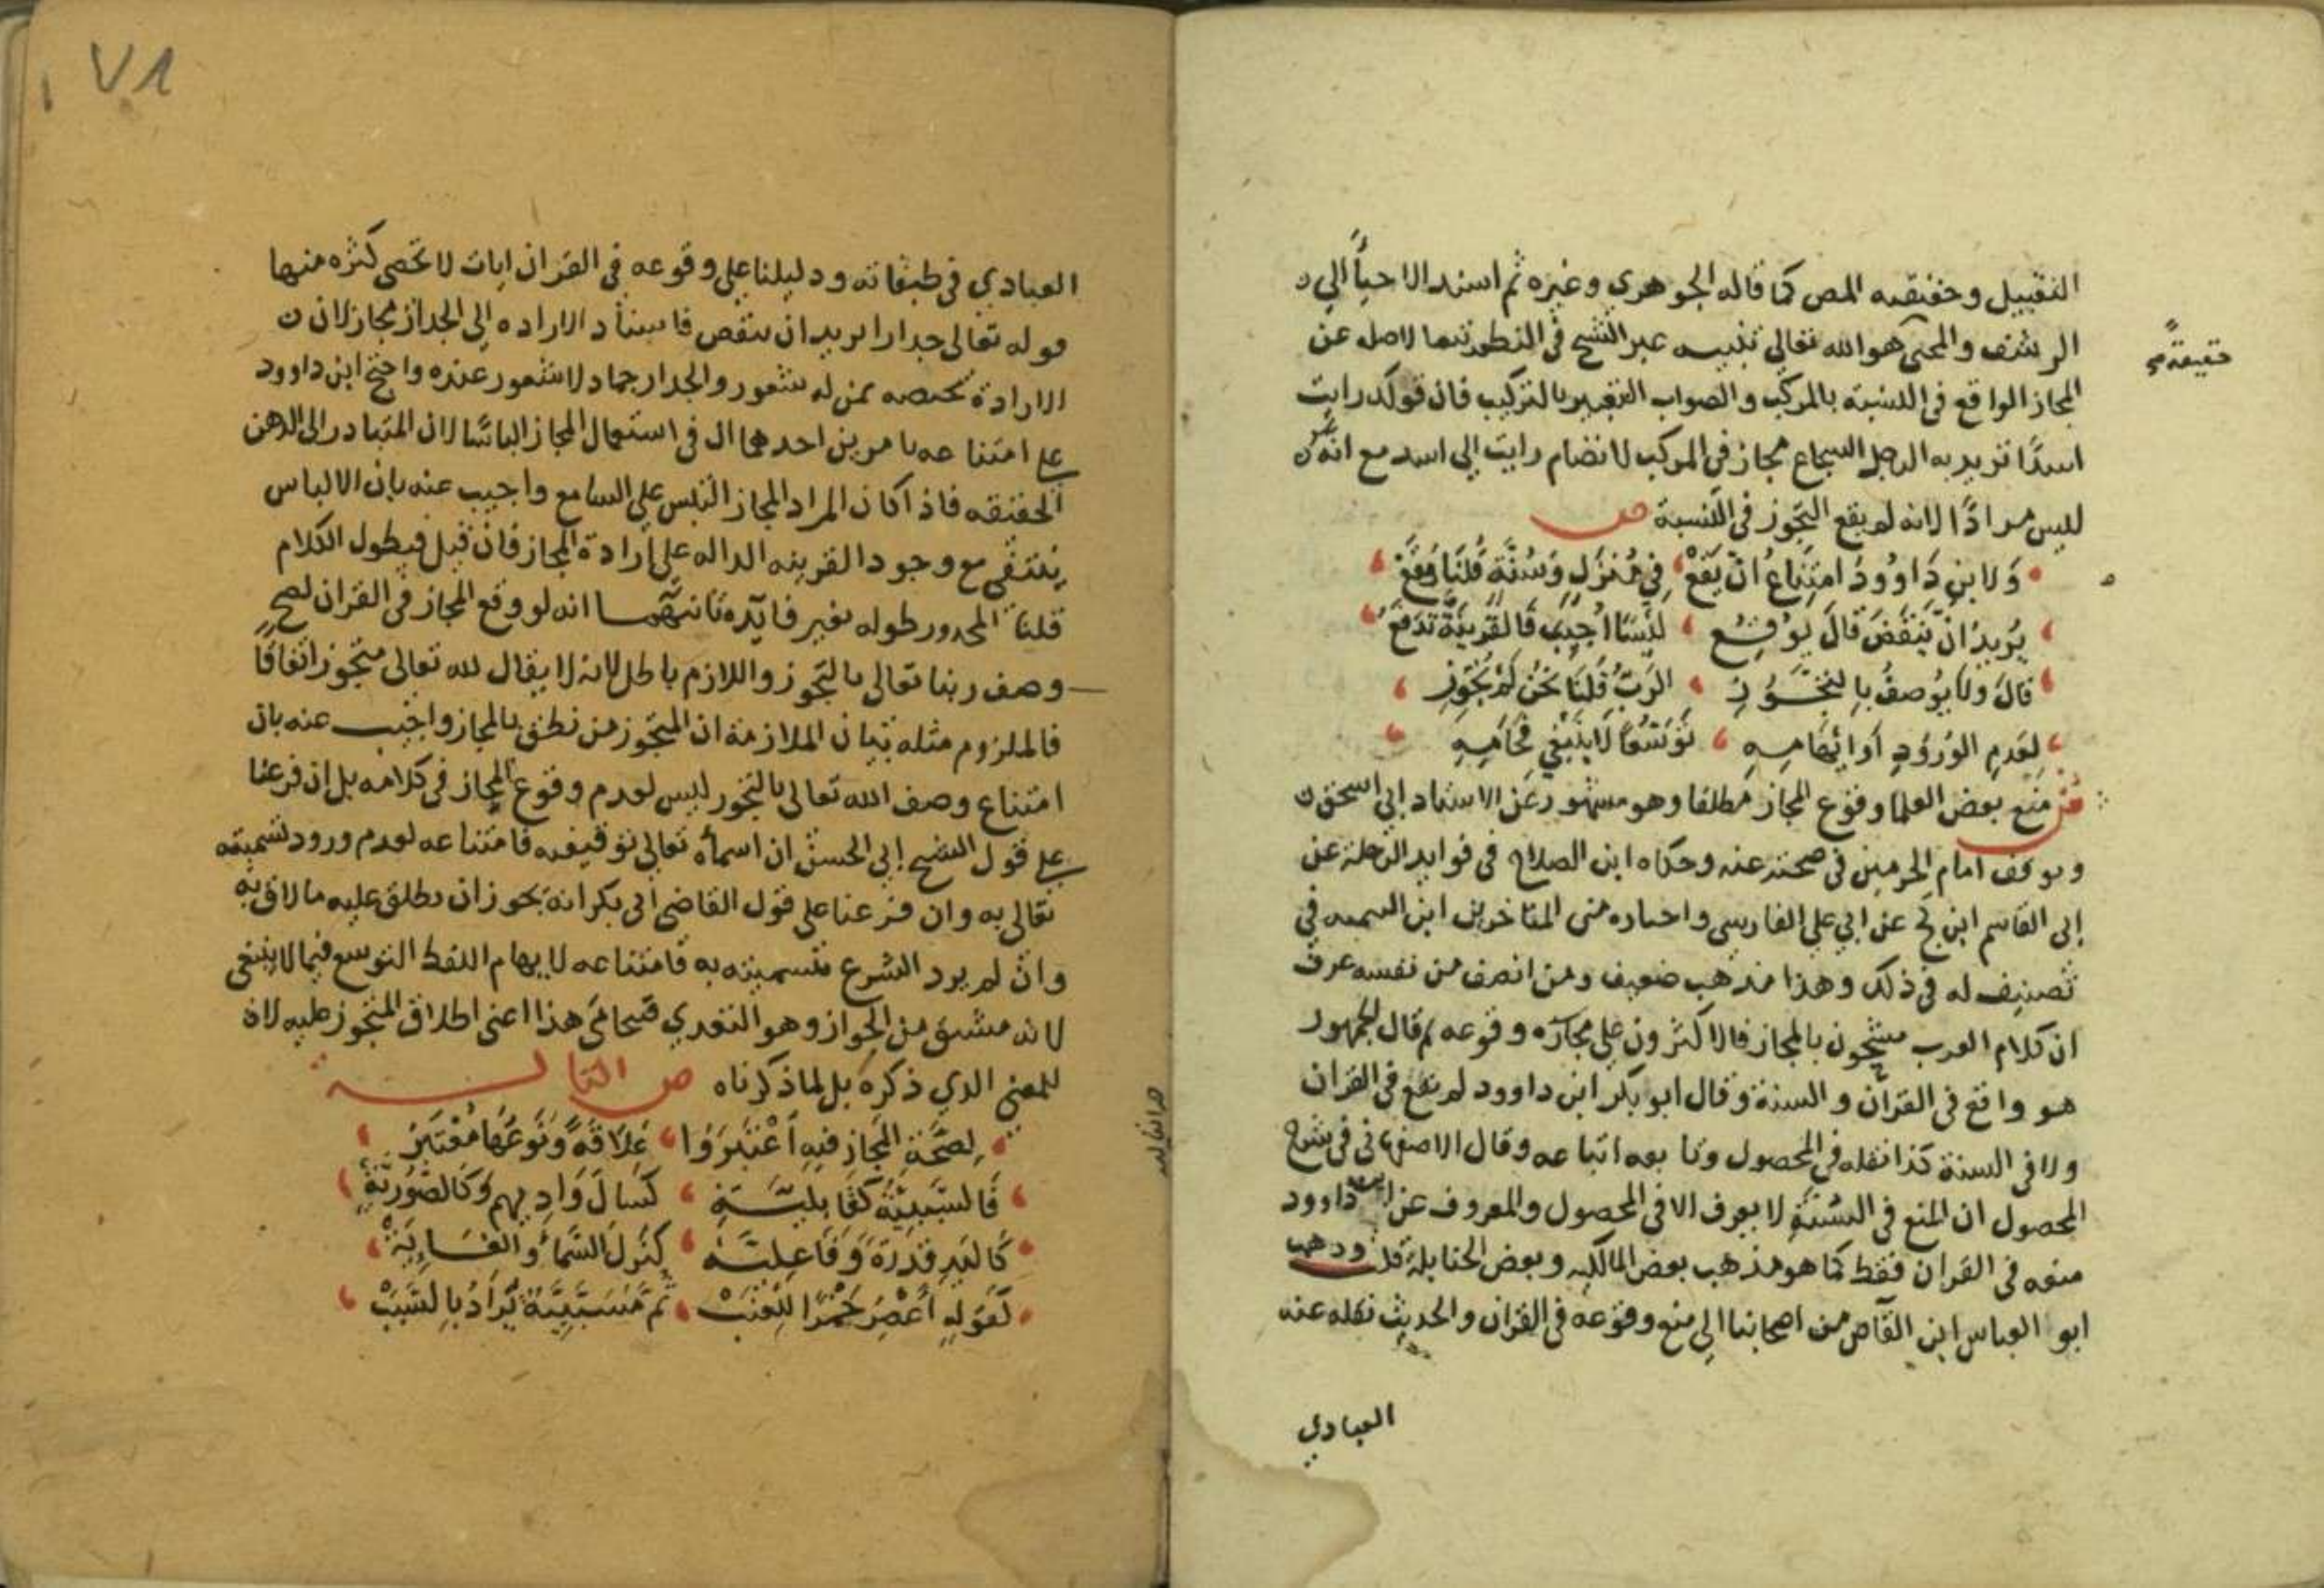 التقبيل وحقيقته المص كما قاله الجوهري وغيره ثم اسند الاحيأ الي
الرشف والمحيى هو الله تعالي تنبيه عبر الشيخ في النظم تبعا لاصله عن
حقيقة
المجاز الواقع في النسبة بالمركب والصواب التعبير بالتركيب فان قولك رايت
اسدًا تريد به الرجل الشجاع مجاز في المركب لانضمام رايت الي اسد مع انه غير
ليس مرادًا لانه لم يقع التجوز في النسبة ص
وَلابنِ دَاوُودُ امتِنَاعُ انْ يَقَعْ فِي مُنْزَلٍ وَسُنَّةٍ قُلنَا وَقَعْ
يُرِيدُ انْ يَنْقَضَ قالَ يُوقِعُ لَبْسًا اُجِيبَ فَالقَرِينَةُ تَدفَعُ
قالَ ولَا يُوصفُ بِالتجَوُّزِ الرَبُّ قُلنَا نَحْنُ لَمْ نُجَوِّزِ
لِعَدمِ الوُرُودِ اَو ايْهَامِهِ تَوَسُّعًا لَا يَنْبَغِي فَحَامِهِ
ش منع بعض العلما وقوع المجاز مطلقا وهو مشهور عن الاستاد ابي اسحق
وتوقف امام الحرمين في صحته عنه وحكاه ابن الصلاح في فوايد الرحلة عن
ابي القاسم ابن كج عن ابي علي الفارسي واختاره من المتاخرين ابن التيميه في
تصنيف له في ذلك وهذا مذهب ضعيف ومن انصف من نفسه عرف
ان كلام العرب مشحون بالمجاز فالاكثرون علي مجازه وقوعه ثم قال الجمهور
هو واقع في القرآن والسنة وقال ابو بكر ابن داوود لم يقع في القران
ولا في السنة كذا نقله في المحصول وتابعه اتباعه وقال الاصفهاني في شرح
المحصول ان المنع في السُنَّةِ لا يعرف الا في المحصول والمعروف عن ابن داوود
منعه في القران فقط كما هو مذهب بعض المالكيه وبعض الحنابلة قلت وذهب
ابو العباس ابن القآص من اصحابنا الي منع وقوعه في القران والحديث نقله عنه
العبادي
٧١
العبادي في طبقاته ودليلنا علي وقوعه في القران ايات لا تحصي كثره منها
قوله تعالى جدارا يريد ان ينقض فاسناد الاراده الي الجداز مجاز لان
الارادة مختصه بمن له شعور والجدار جماد لا شعور عنده واحتج ابن داوود
علي امتناعه بامرين احدهما ان في استعمال المجاز الباسًا لان المتبادر الي الذهن
الحقيقه فاذا كان المراد المجاز التبس علي السامع واجيب عنه بان الالباس
ينتفي مع وجود القرينه الداله علي ارادة المجاز فان قيل فيطول الكلام
قلنا المحدور طوله بغير فايده ثانيهما انه لو وقع المجاز في القران لصح
وصف ربنا تعالى بالتجوز واللازم باطل لانه لا يقال لله تعالى متجوز اتفاقا
فالملزوم مثله بيان الملازمة ان المتجوز من نطق بالمجاز واجيب عنه بان
امتناع وصف الله تعالى بالتجوز ليس لعدم وقوع المجاز في كلامه بل ان فرعنا
علي قول الشيخ ابي الحسن ان اسمآه تعالي توقيفيه فامتناعه لعدم ورود تسميته
تعالي به وان فرعنا علي قول القاضي ابي بكر انه يجوز ان يطلق عليه ما لاق به
وان لم يرد الشرع بتسميته به فامتناعه لايهام اللفظ التوسع فيما لا ينبغي
لانه مشتق من الجواز وهو التعدي فتحامي هذا اعني اطلاق المتجوز عليه لاة
للمعني الذي ذكره بل لما ذكرناه ص الثالثة
لِصحَّةِ المَجاز فيهِ اَعْتَبَرُوا عَلاقَةً وَنَوعُهَا مُعْتَبَرُ
فَالسَّبَبِيَّةُ كَقَابِلِيَّةِ كَسَالَ وَادِيهِم وَكَالصُّورِيَّةِ
كَاليَدِ قدرَةً وَفَاعِلِيَّه كنَزَلَ السَّمَاُ والغَايِيَةْ
كَقَولِهِ اَعْصِرُ خَمْرًا لِلْعِنَبْ ثُمَّ مُسَبَّبِيَّةُ يُرَادُ بِالسَّبَبْ